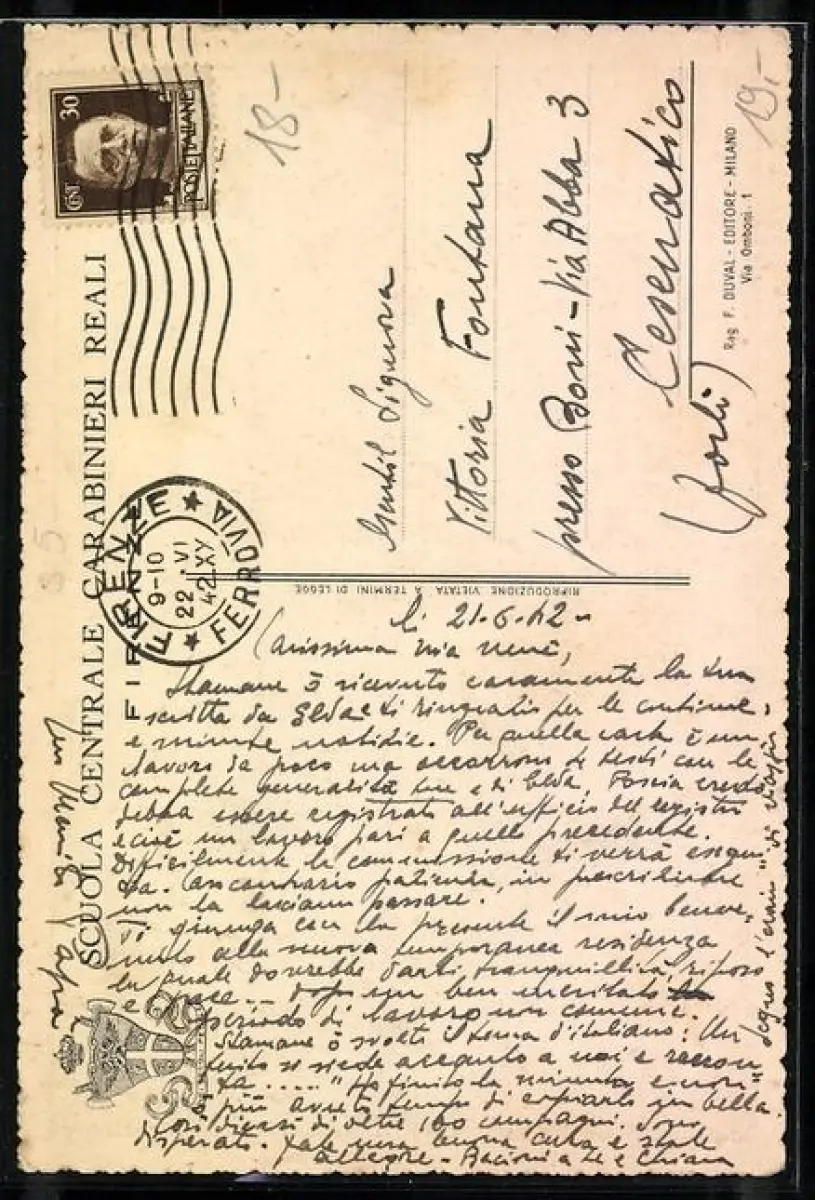 CENT 30
POSTE ITALIANE
18-
19,-
35
SCUOLA CENTRALE CARABINIERI REALI
FIRENZE
FIRENZE
9-10
22.VI
42.XX
FERROVIA
Gentil Signora
Vittoria Fontana
presso Boni - Via Abba 3
Cesenatico
(Forlì)
Rag. F. DUVAL - EDITORE - MILANO
Via Omboni, 1
RIPRODUZIONE VIETATA A TERMINI DI LEGGE
lì 21.6.42
Carissima mia
Stamane ò ricevuto caramente la tua
scritta da Elda e ti ringrazio per le continue
e minute notizie. Per quella carta è un
lavoro da poco ma occorrono i testi con le
complete generalità tue e di Elda. Poscia credo
debba essere registrata all'ufficio del registro
e cioè un lavoro pari a quello precedente.
Difficilmente la commissione ti verrà esegui
ta. Caso contrario pazienza,
non la lasciano passare.
Ti giunga con la presente il mio benve,
nuto alla nuova temporanea residenza
la quale dovrebbe darti tranquillità, riposo
e pace... dopo un ben meritato
periodo di lavoro non comune.
Stamane ò svolto il tema d'italiano: "Un
ferito si siede accanto a noi e raccon
ta ....." Ho finito la minuta e non
ò più avuto tempo di copiarlo in bella
così dicasi di oltre 160 compagni. Sono
disperati. Fate una buona cura e state
allegre - Bacioni a te e Chiara